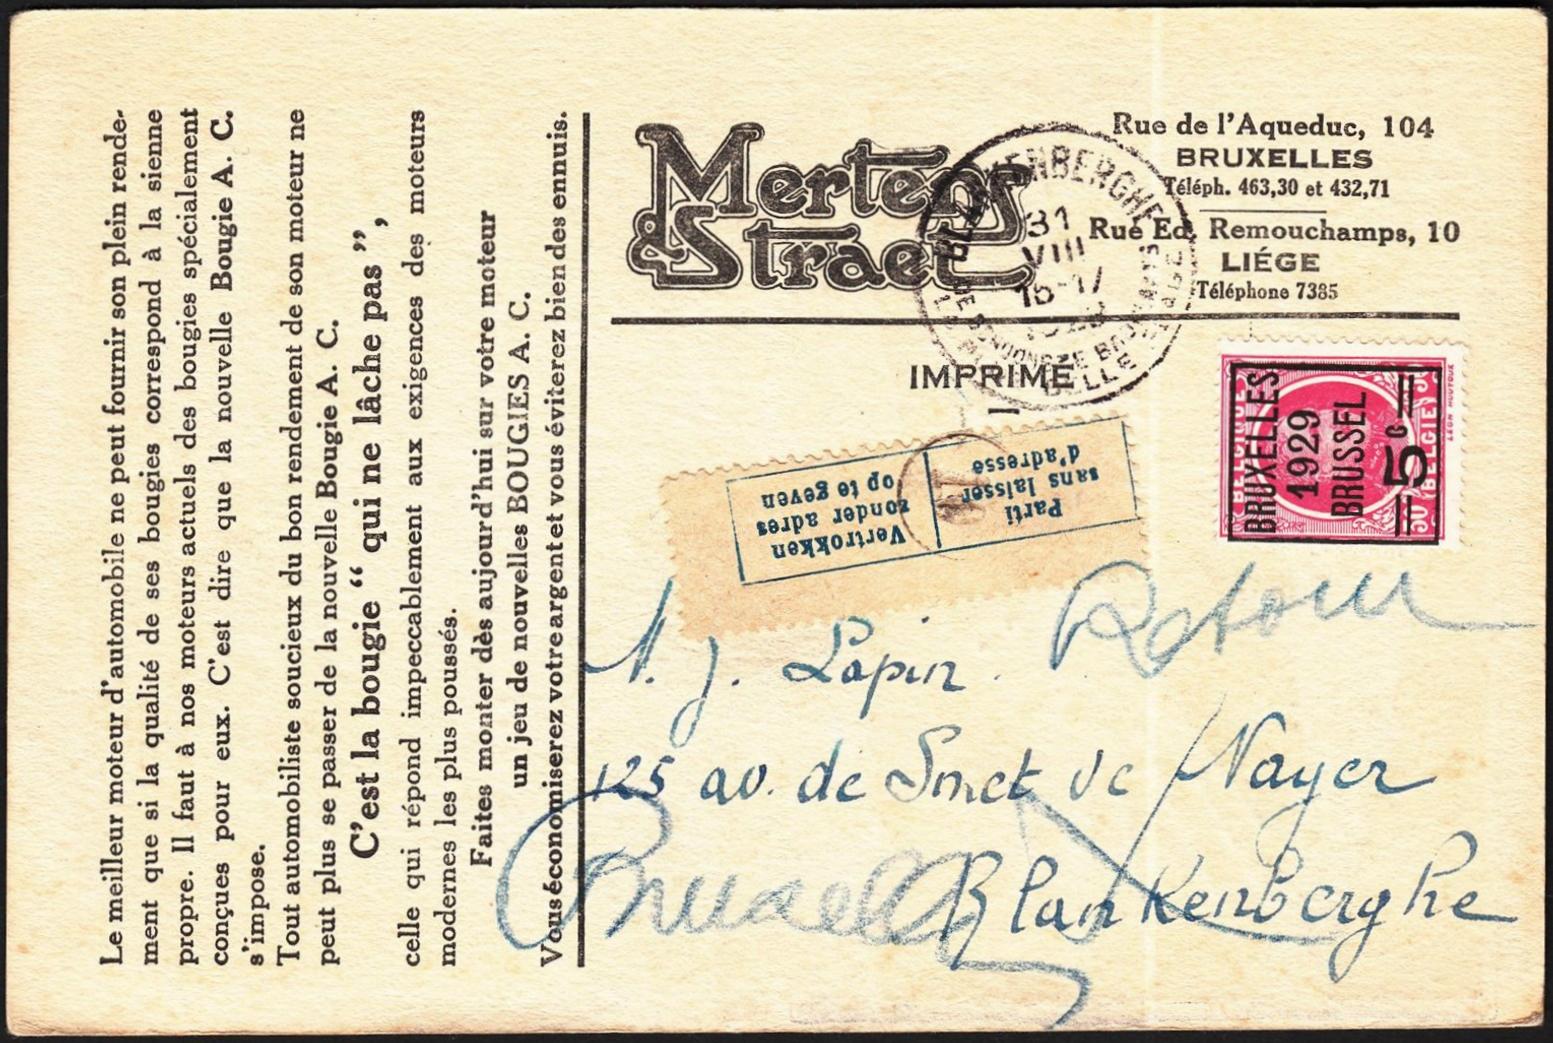 Le meilleur moteur d'automobile ne peut fournir son plein rende-
ment que si la qualité de ses bougies correspond à la sienne
propre. Il faut à nos moteurs actuels des bougies spécialement
conçues pour eux. C'est dire que la nouvelle Bougie A. C.
s'impose.
Tout automobiliste soucieux du bon rendement de son moteur ne
peut plus se passer de la nouvelle Bougie A. C.
C'est la bougie “ qui ne lâche pas ”,
celle qui répond impeccablement aux exigences des moteurs
modernes les plus poussés.
Faites monter dès aujourd'hui sur votre moteur
un jeu de nouvelles BOUGIES A. C.
Vous économiserez votre argent et vous éviterez bien des ennuis.
Mertens
& Straet
Rue de l'Aqueduc, 104
BRUXELLES
Téléph. 463,30 et 432,71
Rue Ed. Remouchamps, 10
LIÉGE
Téléphone 7385
BLANKENBERGHE
31
VIII
16-17
IMPRIMÉ
BRUXELLES
1929
BRUSSEL
5 c
BELGIQUE
BELGIË
50
LÉON HOUYOUX
Vertrokken
zonder adres
op te geven
Parti
sans laisser
d'adresse
Retour
J. Lapin
125 av. de Smet de Nayer
Blankenberghe
Bruxelles